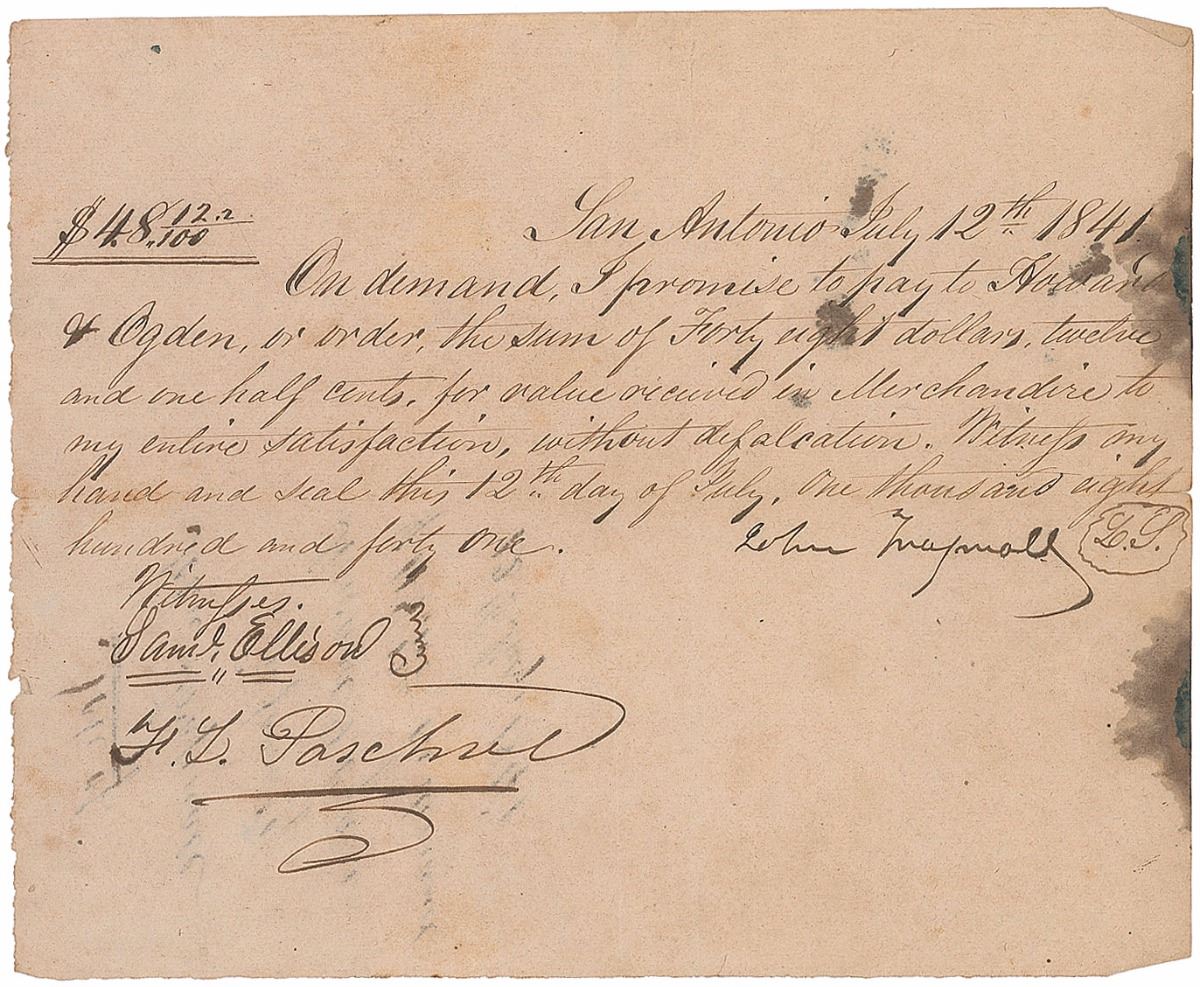 $48 12.2/100 San Antonio July 12th 1841.
On demand, I promise to pay to Howard
& Ogden, or order, the sum of Forty eight dollars, twelve
and one half cents, for value recieved in Merchandize to
my entire satisfaction, without defalcation. Witness my
hand and seal this 12th day of July, One thousand eight
hundred and forty one.
John L.S.
Witnesses.
Saml. Ellison
F. L. Paschal